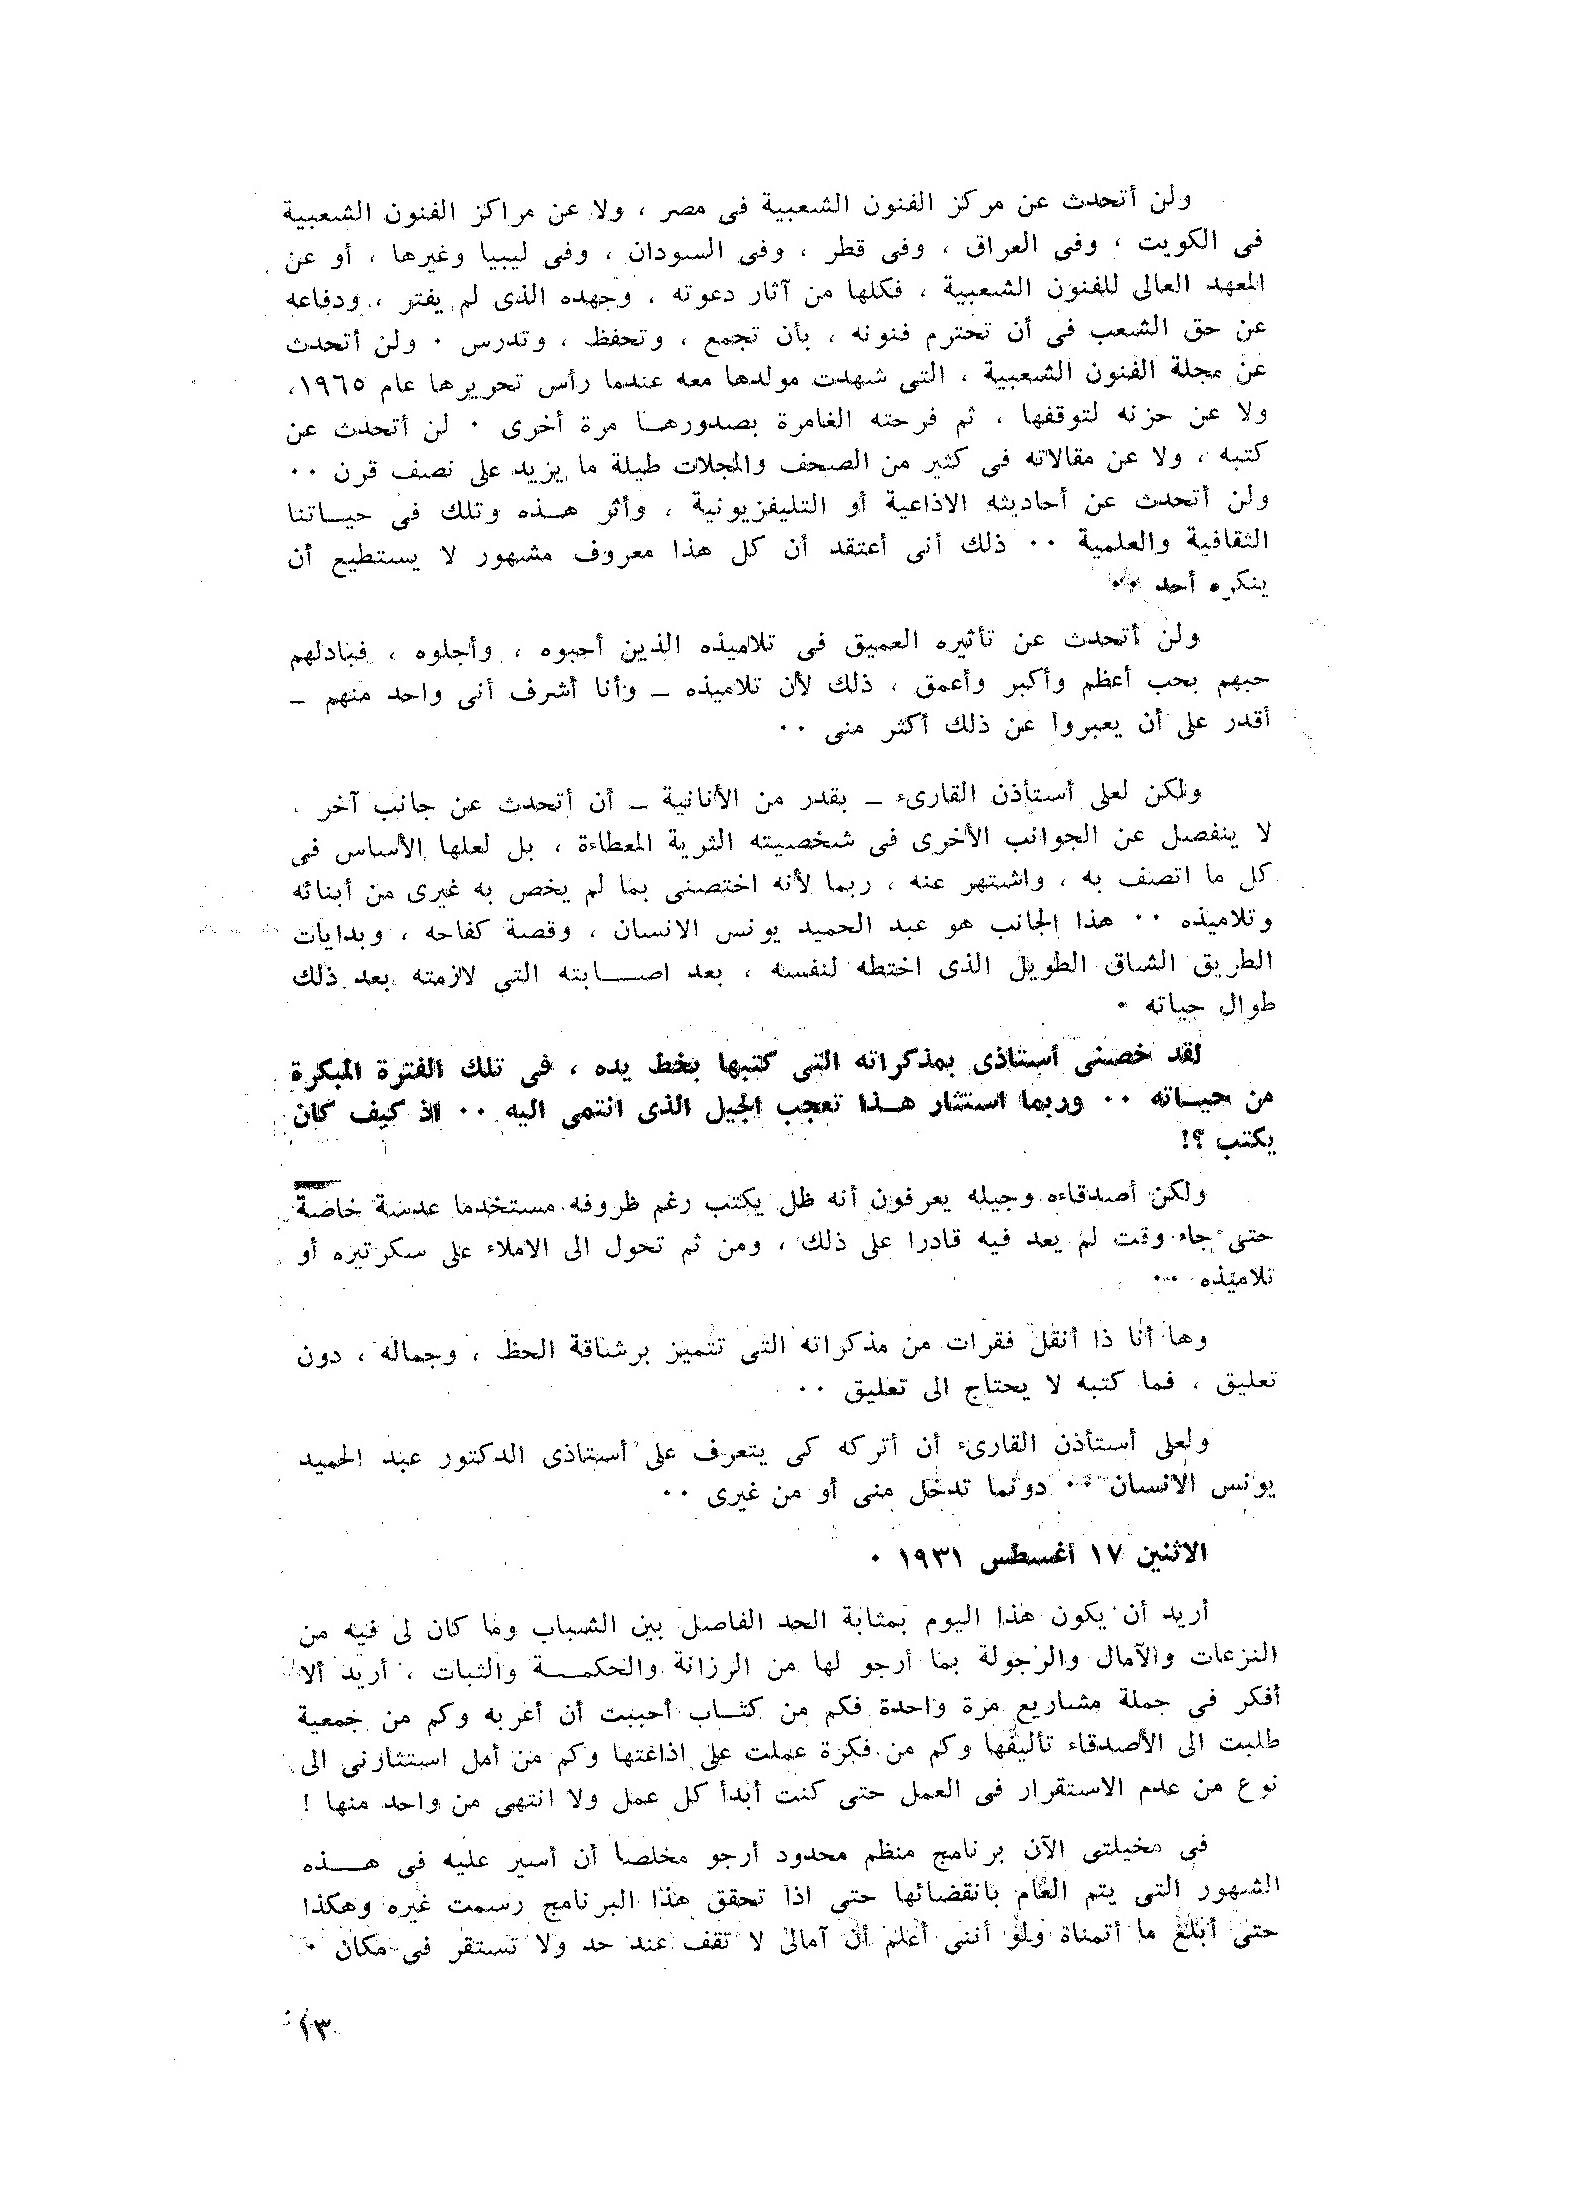 ولن أتحدث عن مركز الفنون الشعبية فى مصر ، ولا عن مراكز الفنون الشعبية
فى الكويت ، وفى العراق ، وفى قطر ، وفى السودان ، وفى ليبيا وغيرها ، أو عن
المعهد العالى للفنون الشعبية ، فكلها من آثار دعوته ، وجهده الذى لم يفتر ، ودفاعه
عن حق الشعب فى أن تحترم فنونه ، بأن تجمع ، وتحفظ ، وتدرس ٠ ولن أتحدث
عن مجلة الفنون الشعبية ، التى شهدت مولدها معه عندما رأس تحريرها عام ١٩٦٥،
ولا عن حزنه لتوقفها ، ثم فرحته الغامرة بصدورهــا مرة أخرى ٠ لن أتحدث عن
كتبه ، ولا عن مقالاته فى كثير من الصحف والمجلات طيلة ما يزيد على نصف قرن ٠٠
ولن أتحدث عن أحاديثه الاذاعية أو التليفزيونية ، وأثر هــذه وتلك فى حيــاتنا
الثقافية والعلمية ٠٠ ذلك أنى أعتقد أن كل هذا معروف مشهور لا يستطيع أن
ينكره أحد ٠٠
ولن أتحدث عن تأثيره العميق فى تلاميذه الذين أحبوه ، وأجلوه ، فبادلهم
حبهم بحب أعظم وأكبر وأعمق ، ذلك لأن تلاميذه ـ وأنا أشرف أنى واحد منهم ـ
أقدر على أن يعبروا عن ذلك أكثر منى ٠٠
ولكن لعلى أستأذن القارىء ـ بقدر من الأنانية ـ أن أتحدث عن جانب آخر ،
لا ينفصل عن الجوانب الأخرى فى شخصيته الثرية المعطاءة ، بل لعلها الأساس فى
كل ما اتصف به ، واشتهر عنه ، ربما لأنه اختصنى بما لم يخص به غيرى من أبنائه
وتلاميذه ٠٠ هذا الجانب هو عبد الحميد يونس الانسان ، وقصة كفاحه ، وبدايات
الطريق الشاق الطويل الذى اختطه لنفسه ، بعد اصـــابته التى لازمته بعد ذلك
طوال حياته ٠
لقد خصنى أستاذى بمذكراته التى كتبها بخط يده ، فى تلك الفترة المبكرة
من حيــاته ٠٠ وربما استثار هــذا تعجب الجيل الذى انتمى اليه ٠٠ اذ كيف كان
يكتب ؟!
ولكن أصدقاءه وجيله يعرفون أنه ظل يكتب رغم ظروفه مستخدما عدسة خاصة
حتى جاء وقت لم يعد فيه قادرا على ذلك ، ومن ثم تحول الى الاملاء على سكرتيره أو
تلاميذه ٠٠
وها أنا ذا أنقل فقرات من مذكراته التى تتميز برشاقة الحظ ، وجماله ، دون
تعليق ، فما كتبه لا يحتاج الى تعليق ٠٠
ولعلى أستأذن القارىء أن أتركه كى يتعرف على أستاذى الدكتور عبد الحميد
يونس الانسان ٠٠ دونما تدخل منى أو من غيرى ٠٠
الاثنين ١٧ أغسطس ١٩٣١ ٠
أريد أن يكون هذا اليوم بمثابة الحد الفاصل بين الشباب وما كان لى فيه من
النزعات والآمال والرجولة بما أرجو لها من الرزانة والحكمـــة والثبات ، أريد ألا
أفكر فى جملة مشاريع مرة واحدة فكم من كتــاب أحببت أن أعربه وكم من جمعية
طلبت الى الأصدقاء تأليفها وكم من فكرة عملت على اذاعتها وكم من أمل استثارنى الى
نوع من عدم الاستقرار فى العمل حتى كنت أبدأ كل عمل ولا انتهى من واحد منها !
فى مخيلتى الآن برنامج منظم محدود أرجو مخلصا أن أسير عليه فى هـــذه
الشهور التى يتم العام بانقضائها حتى اذا تحقق هذا البرنامج رسمت غيره وهكذا
حتى أبلغ ما أتمناة ولو أننى أعلم أن آمالى لا تقف عند حد ولا تستقر فى مكان ٠
١٣